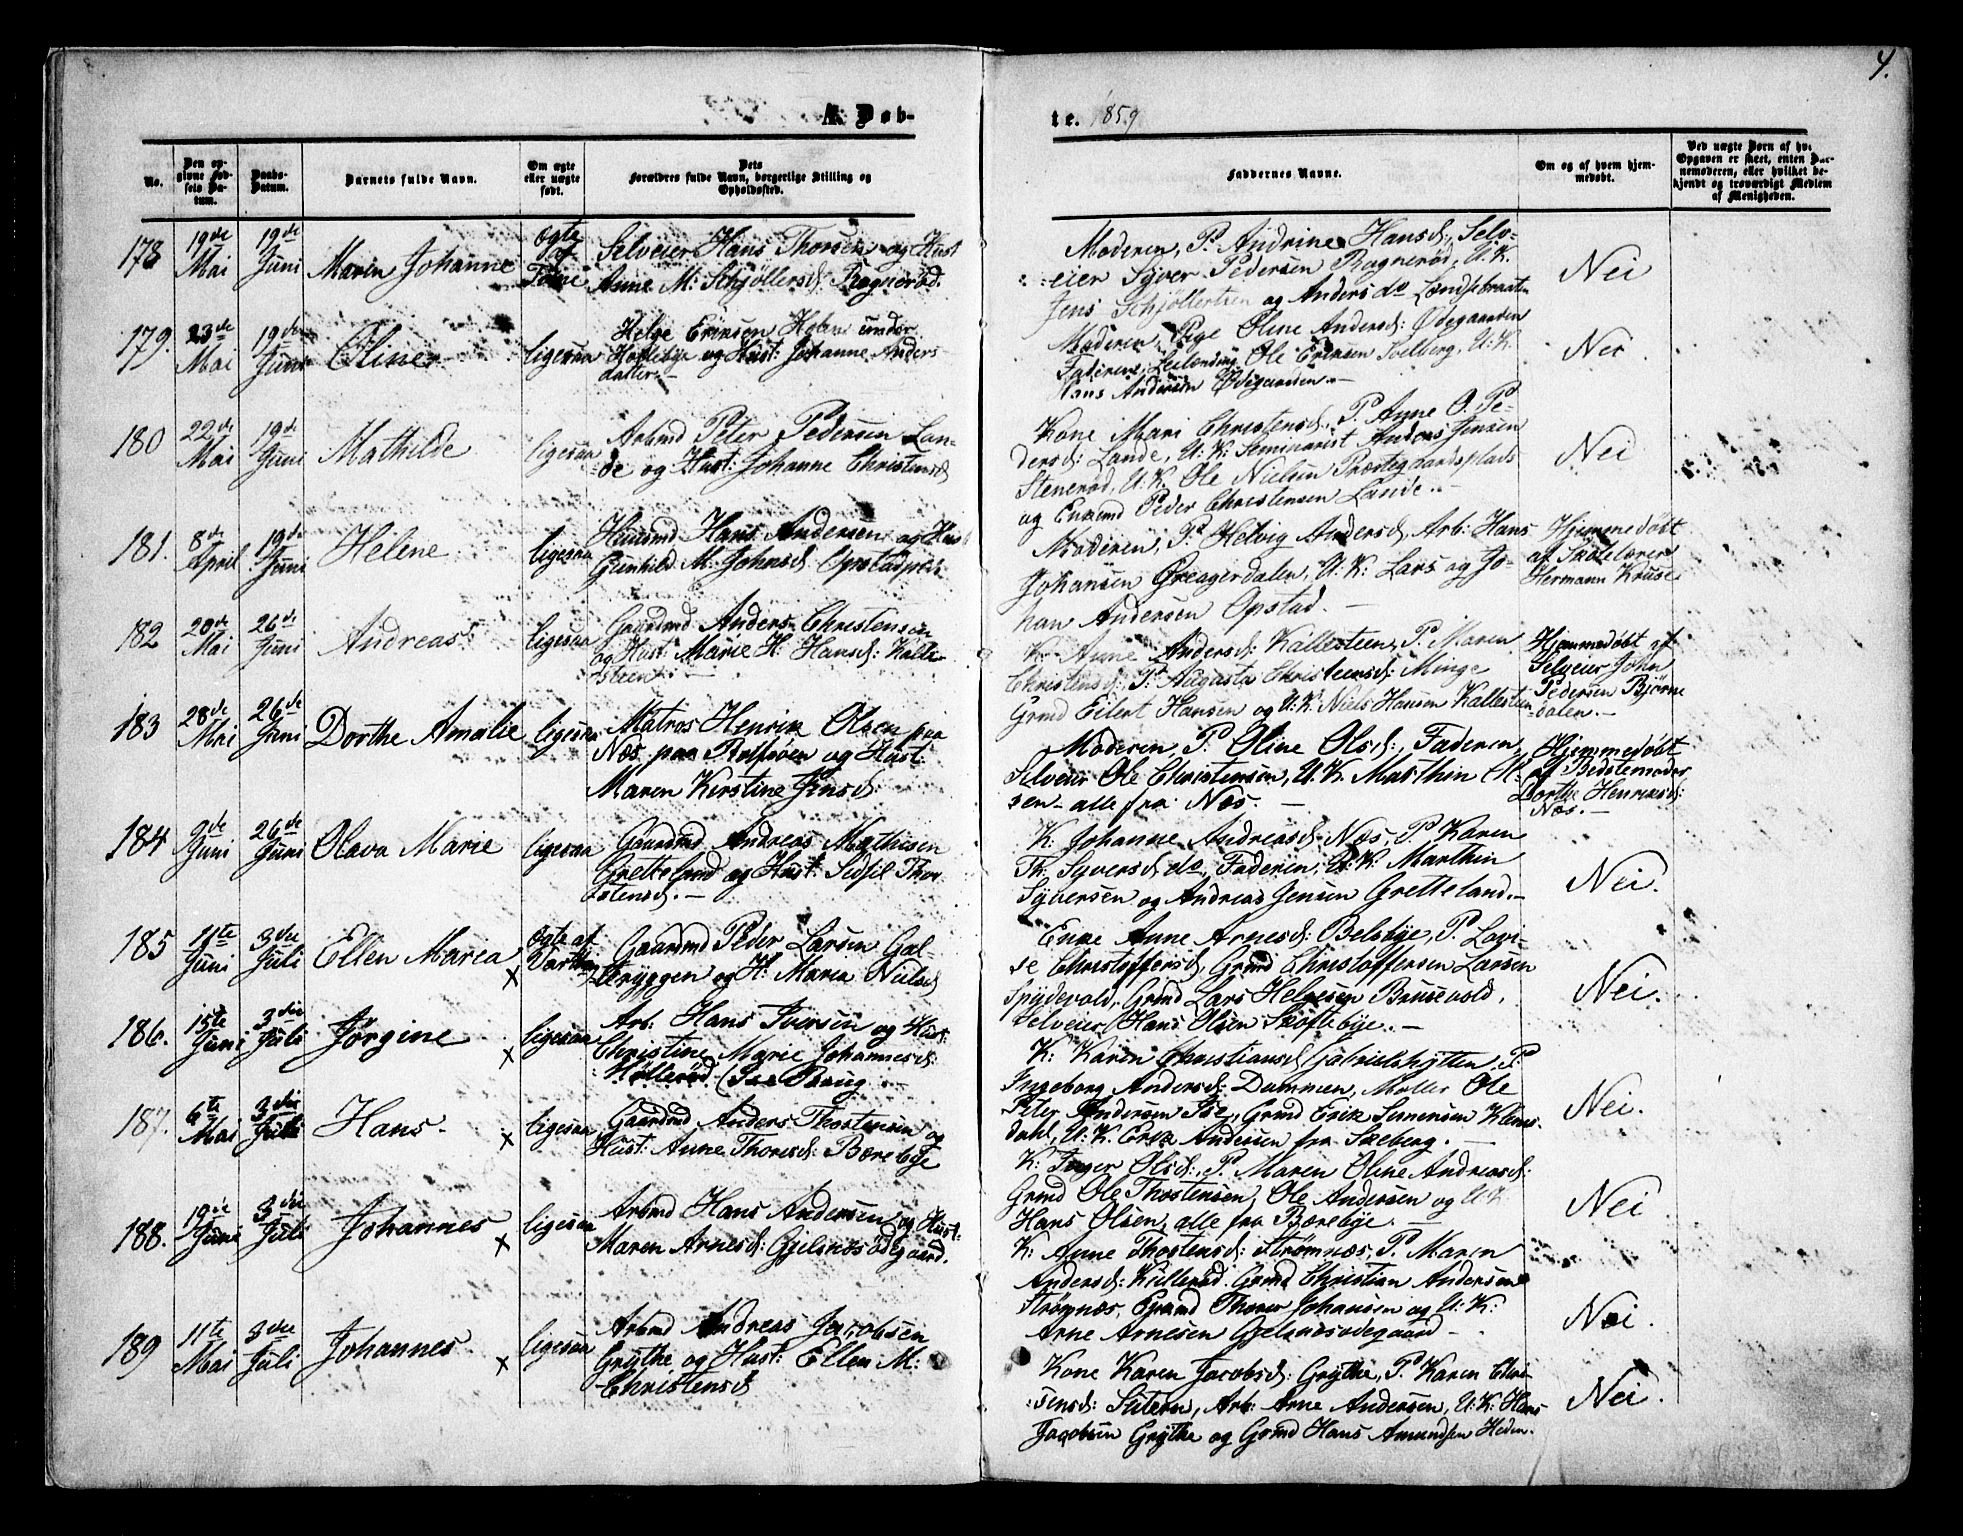 4.
A. Døb-
te. 1859
No.
Den op-
givne Fød-
sels Da-
tum.
Daabs-
Datum.
Barnets fulde Navn.
Om ægte
eller uægte
født.
Dets
Forældres fulde Navn, borgerlige Stilling og
Opholdssted.
Faddernes Navne.
Om og af hvem hjem-
medøbt.
Ved uægte Børn af hvem
Opgaven er skeet, enten Bar-
nemoderen, eller hvilket be-
kjendt og troværdigt Medlem
af Menigheden.
178 19de Mai 19de Juni Maren Johanne Ægte
Selveier Hans Thorsen og Hust
Anne M: Schjøllersd: Rognerød.
Moderen, P. Andrine Hansd, Selv-
eier Syver Pedersen Rognerød, U.K.
Jens Schjøllertsen og Anders do
Nei
179. 23de Mai 19de Juni Oline ligesaa
Helge Eriksen under
Haslebye og Hust: Johanne Anders-
datter.-
Moderen, Pige Oline Andersd: Ødegaarden
Faderen, Ole Eriksen Solberg, U.K.
Hans Andersen Ødegaarden.-
Nei
180 22de Mai 19de Juni Mathilde ligesaa
Arbmd Peter Pedersen Lan-
de og Hust: Johanne Christensd
Kone Mari Christensd, P. Anne O. Pe-
dersd: Lande, U.K: Seminarist Anders Jensen
Stenerød, U.K. Ole Nielsen Præstegaardsplads
og Enkemd Peder Christensen Lande.-
Nei
181. 8de April 19de Juni Helene ligesaa
Huusmd Hans Andersen og Hust
Gunhild M: Johnsd:
Moderen, P. Helvig Andersd, Arb: Hans
Johansen Greagerdalen, U.K: Lars og Jo-
han Andersen Opstad.-
Hjemmedøbt
af Skolelærer
Hermann Kruse.
182 20de Mai 26de Juni Andreas ligesaa
Gaardmd Anders Christensen
og Hust: Marie H: Hansd: Kalle-
steen.-
K. Anne Andersd: Kallesteen, P. Maren
Christensd, P. Augusta Christensd: Minge
Grmd Eilert Hansen og U.K: Niels Hansen Kallesteen
Hjemmedøbt af
Selveier John
Pedersen Bjørne-
dalen.-
183 28de Mai 26de Juni Dorthe Amalie ligesaa
Matros Henrik Olsen paa
Næs paa Rolfsøen og Hust:
Maren Kirstine Jensd:
Moderen, P. Oline Olsd:, Faderen,
Selveier Ole Christensen, U.K. Marthin Ol-
sen - alle fra Næs.-
Hjemmedøbt
af Bedstemoder
Dorthe Henriksd:
Næs.-
184 9de Juni 26de Juni Olava Marie ligesaa
Gaardmd Andreas Mathisen
Gretteland og Hust: Sidsil Thor-
stensd.-
K. Johanne Andreasd: Næs, P. Karen
Th. Syversd, do, Faderen, U.K: Marthin
Syversen og Andreas Jensen Gretteland.-
Nei.
185 11te Juni 3die Juli Ellen Maria x Ægte af
Gaardmd Peder Larsen Gal-
teryggen og H: Maria Nielsd
Enke Anne Arnesd: Belsbye, P. Lovi-
se Christoffersd, Grmd Christoffersen Larsen
Spydevold, Grmd Lars Helgesen Brusevold,
Selveier Hans Olsen Skoftebye.-
Nei.
186. 15te Juni 3die Juli Jørgine x ligesaa
Arb: Hans Iversen og Hust:
Christine Marie Johannesd:
Høllerød (Ise Brug
K: Karen Christiansd Gabrielshytten, P
Ingeborg Andersd: Dammen, Møller Ole
Peter Andersen Ise, Grmd Erik Simensen Klems-
dahl, U.K. Erik Andersen fra Skeberg.-
Nei.
187. 6te Mai 3die Juli Hans. x ligesaa
Gaardmd Anders Thostensen og
Hust: Anne Thoresd: Bærebye
K: Inger Olsd:, P. Maren Oline Andreasd:
Grmd Ole Thostensen, Ole Andersen og U.K
Hans Olsen, alle fra Bærebye.-
Nei
188. 19de Juni 3die Juli Johannes x ligesaa
Arbmd Hans Andersen og Hust:
Maren Arnesd: Gjelsnesødegaard.
K: Anne Thostensd: Strømnæs, P. Maren
Andersd: Kullerød. Grmd Christian Andersen
Strømnæs, Grmd Thorer Johansen og U.K:
Arne Arnesen Gjelsnesødegaard -
Nei.
189 11te Mai 3die Juli Johannes x ligesaa
Arbmd Andreas Jacobsen
Grythe og Hust: Ellen M:
Christensd
Kone Karen Jacobsd: Grythe, P. Karen
Arb: Arne Andersen, U.K: Hans
Jacobsen Grythe og Grmd Hans Amundsen Heden.
Nei.